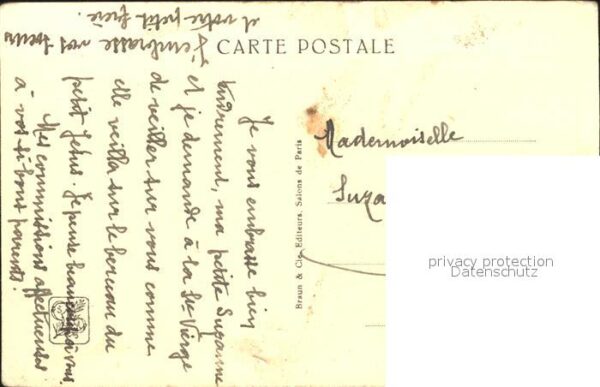 CARTE POSTALE
Je vous embrasse bien
tendrement, ma petite Suzanne
et je demande à la Ste Vierge
de veiller sur vous comme
elle veilla sur le berceau du
petit Jésus. Je pense beaucoup à vous.
Mes commissions affectueuses
à vos si bons parents
J'embrasse vos sœurs
et votre petit frère.
Braun & Cie, Editeurs, Salons de Paris
Mademoiselle
Suza
privacy protection
Datenschutz